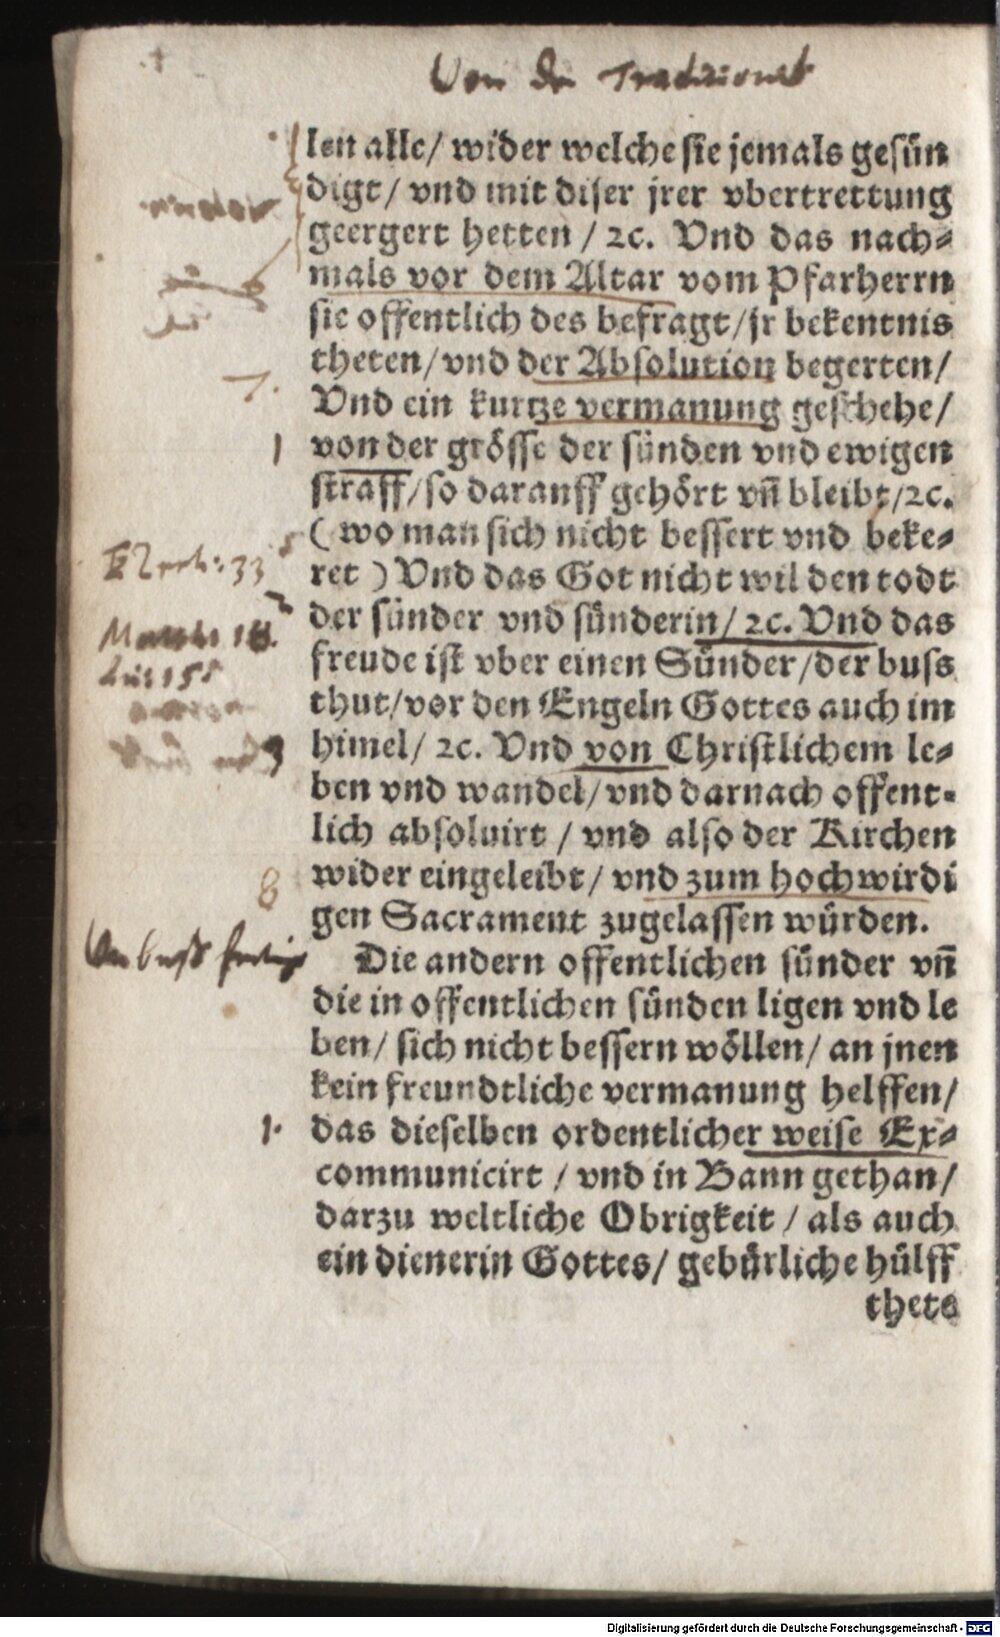 Von den Traditionib
len alle/ wider welche sie jemals gesün
digt/ vnd mit diser jrer vbertrettung
geergert hetten / ꝛc. Vnd das nach⸗
mals vor dem Altar vom Pfarherrn
sie offentlich des befragt/jr bekentnis
theten/vnd der Absolution begerten/
7.
Vnd ein kurtze vermanung geschehe/
1 von der grösse der sünden vnd ewigen
straff/so darauff gehört vñ bleibt/ꝛc.
( wo man sich nicht bessert vnd beke⸗
Ezech: 33
ret ) Vnd das Got nicht wil den todt
2
der sünder vnd sünderin/ ꝛc. Vnd das
Matth 18.
freude ist vber einen Sünder/der buss
Luc 15
thut/vor den Engeln Gottes auch im
3 himel/ ꝛc. Vnd von Christlichem le⸗
ben vnd wandel/vnd darnach offent⸗
lich absoluirt / vnd also der Kirchen
8 wider eingeleibt/ vnd zum hochwirdi
gen Sacrament zugelassen würden.
Vnbußfertige
Die andern offentlichen sünder vñ
die in offentlichen sünden ligen vnd le
ben/ sich nicht bessern wöllen/ an jnen
kein freundtliche vermanung helffen/
1. das dieselben ordentlicher weise Ex⸗
communicirt / vnd in Bann gethan/
darzu weltliche Obrigkeit / als auch
ein dienerin Gottes/ gebürliche hülff
thete
Digitalisierung gefördert durch die Deutsche Forschungsgemeinschaft - DFG